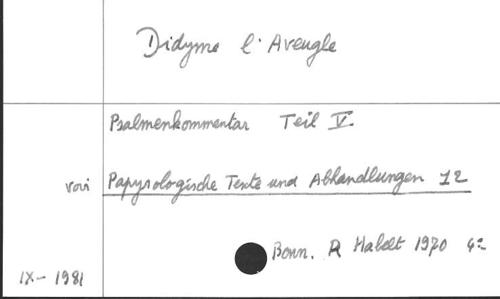 Didyme l'Aveugle
Psalmenkommentar Teil V.
voir Papyrologische Texte und Abhandlungen 12
Bonn. R Habelt 1970 4º
IX-1981